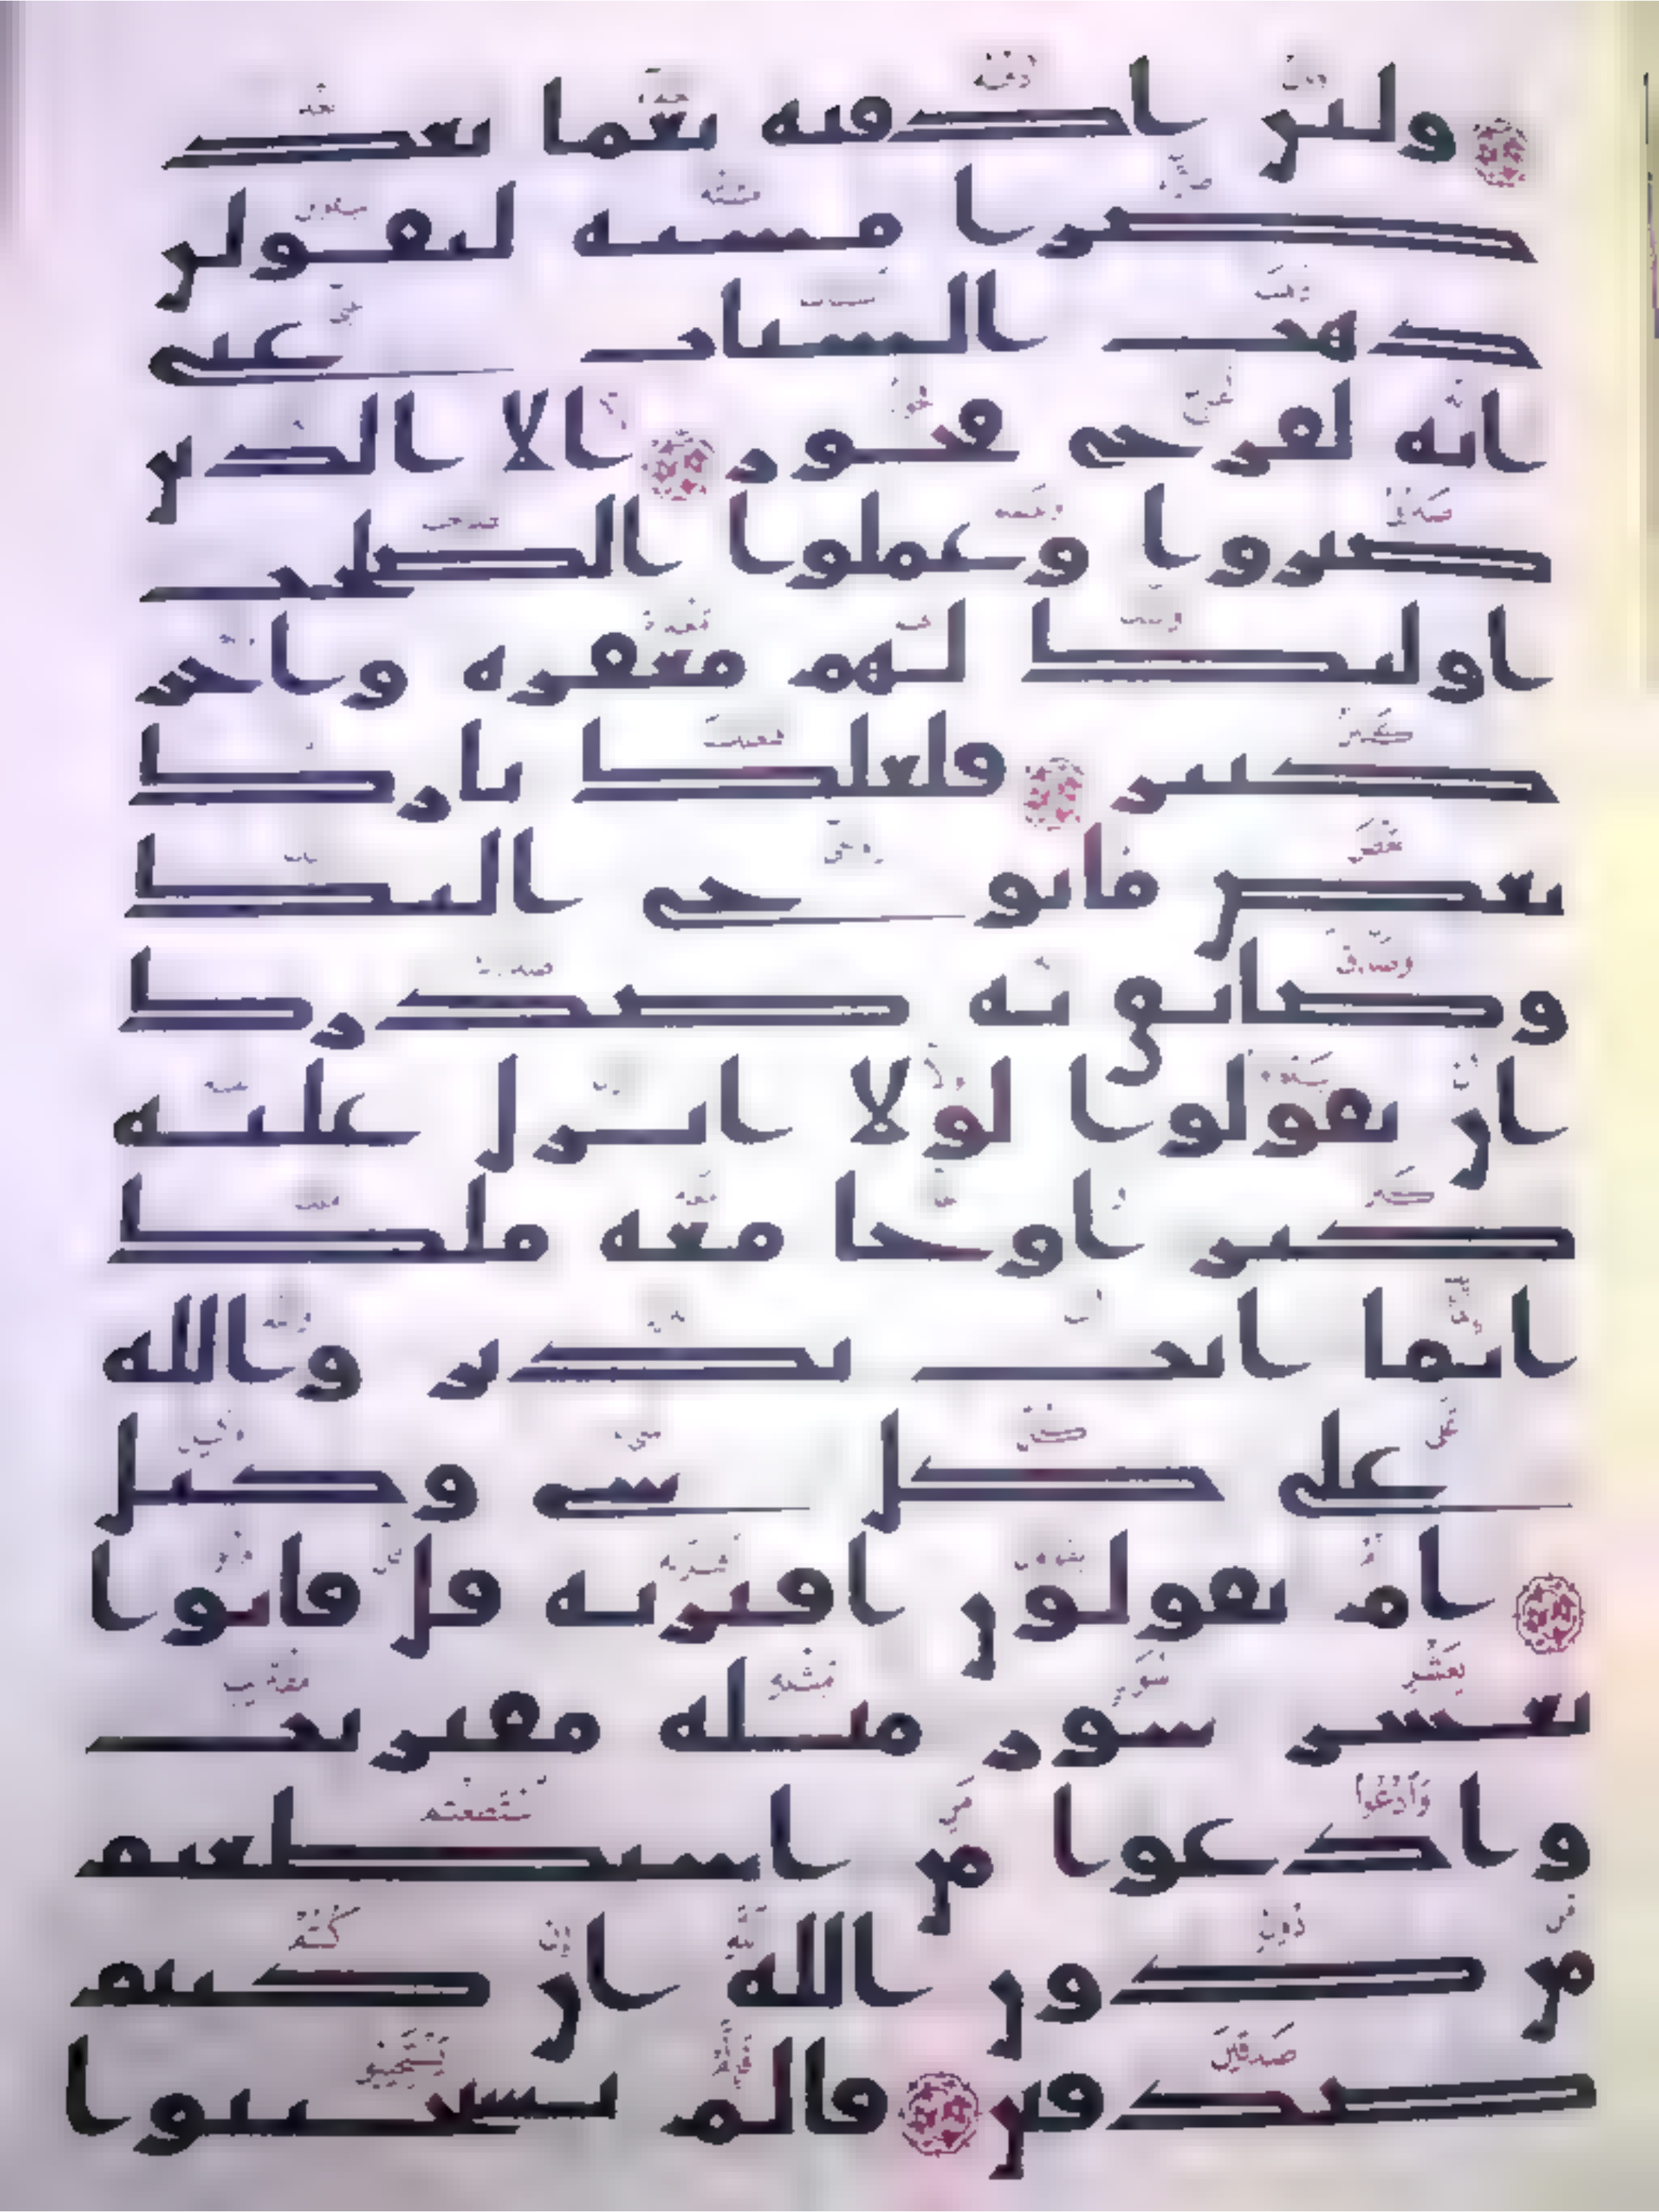 ولئن اذقنه نعما بعد
ضرا مسته ليقولن
ذهب السيات عني
انه لفرح فخور الا الذين
صبروا وعملوا الصلحت
اوليك لهم مغفرة واجر
كبير فلعلك تارك
بعض ما يوحى اليك
وضايق به صدرك
ان يقولوا لولا انزل عليه
كنز او جا معه ملك
انما انت نذير والله
على كل شي وكيل
ام يقولون افتريه قل فاتوا
بعشر سور مثله مفتريت
وادعوا من استطعتم
من دون الله ان كنتم
صدقين فالم يستجيبوا